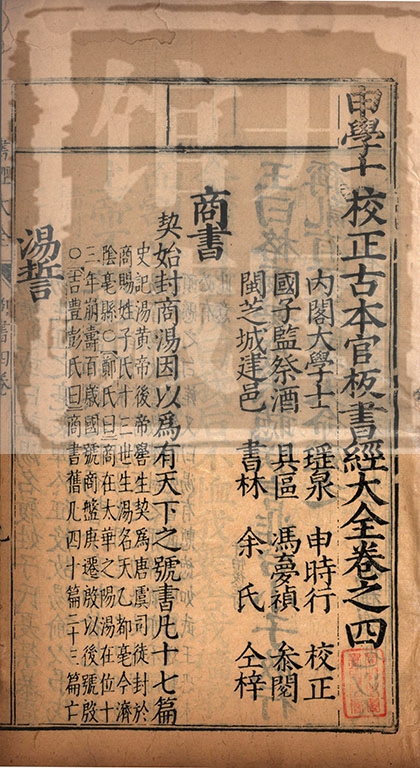 申學士校正古本官板書經大全卷之四
內閣大學士 瑶泉 申時行 校正
國子監祭酒 具區 馮夢禎 叅閱
閩芝城建邑 書林 余氏 仝梓
商書
契始封商湯因以爲有天下之號書凡十七篇
史記湯黃帝後帝嚳生契爲唐虞司徒封於
商賜姓子氏十三世生湯名天乙都亳今濟
陰亳縣○鄭氏曰商在太華之陽湯在位十
三年崩壽百歲國號商盤庚遷殷以後號殷
○吉豊彭氏曰商書舊凡四十篇二十三篇亡
湯誓